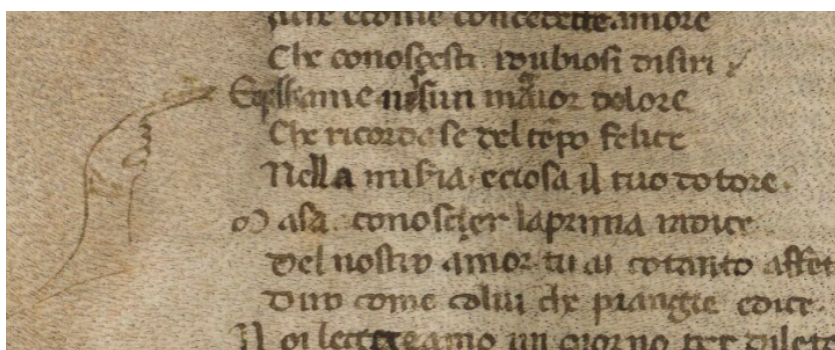 ache econie concedette amore
Che conoscesti idubiosi disiri
Eqlla ame nesun maior dolore
Che ricordarse del tēpo felice
Nella misia eciosa il tuo dotore
Masa conoscier laprima radice
Del nostro amor tu ai cotanto affet
Diro come colui che piangie edice
Noi leggeavamo un giorno per dilet